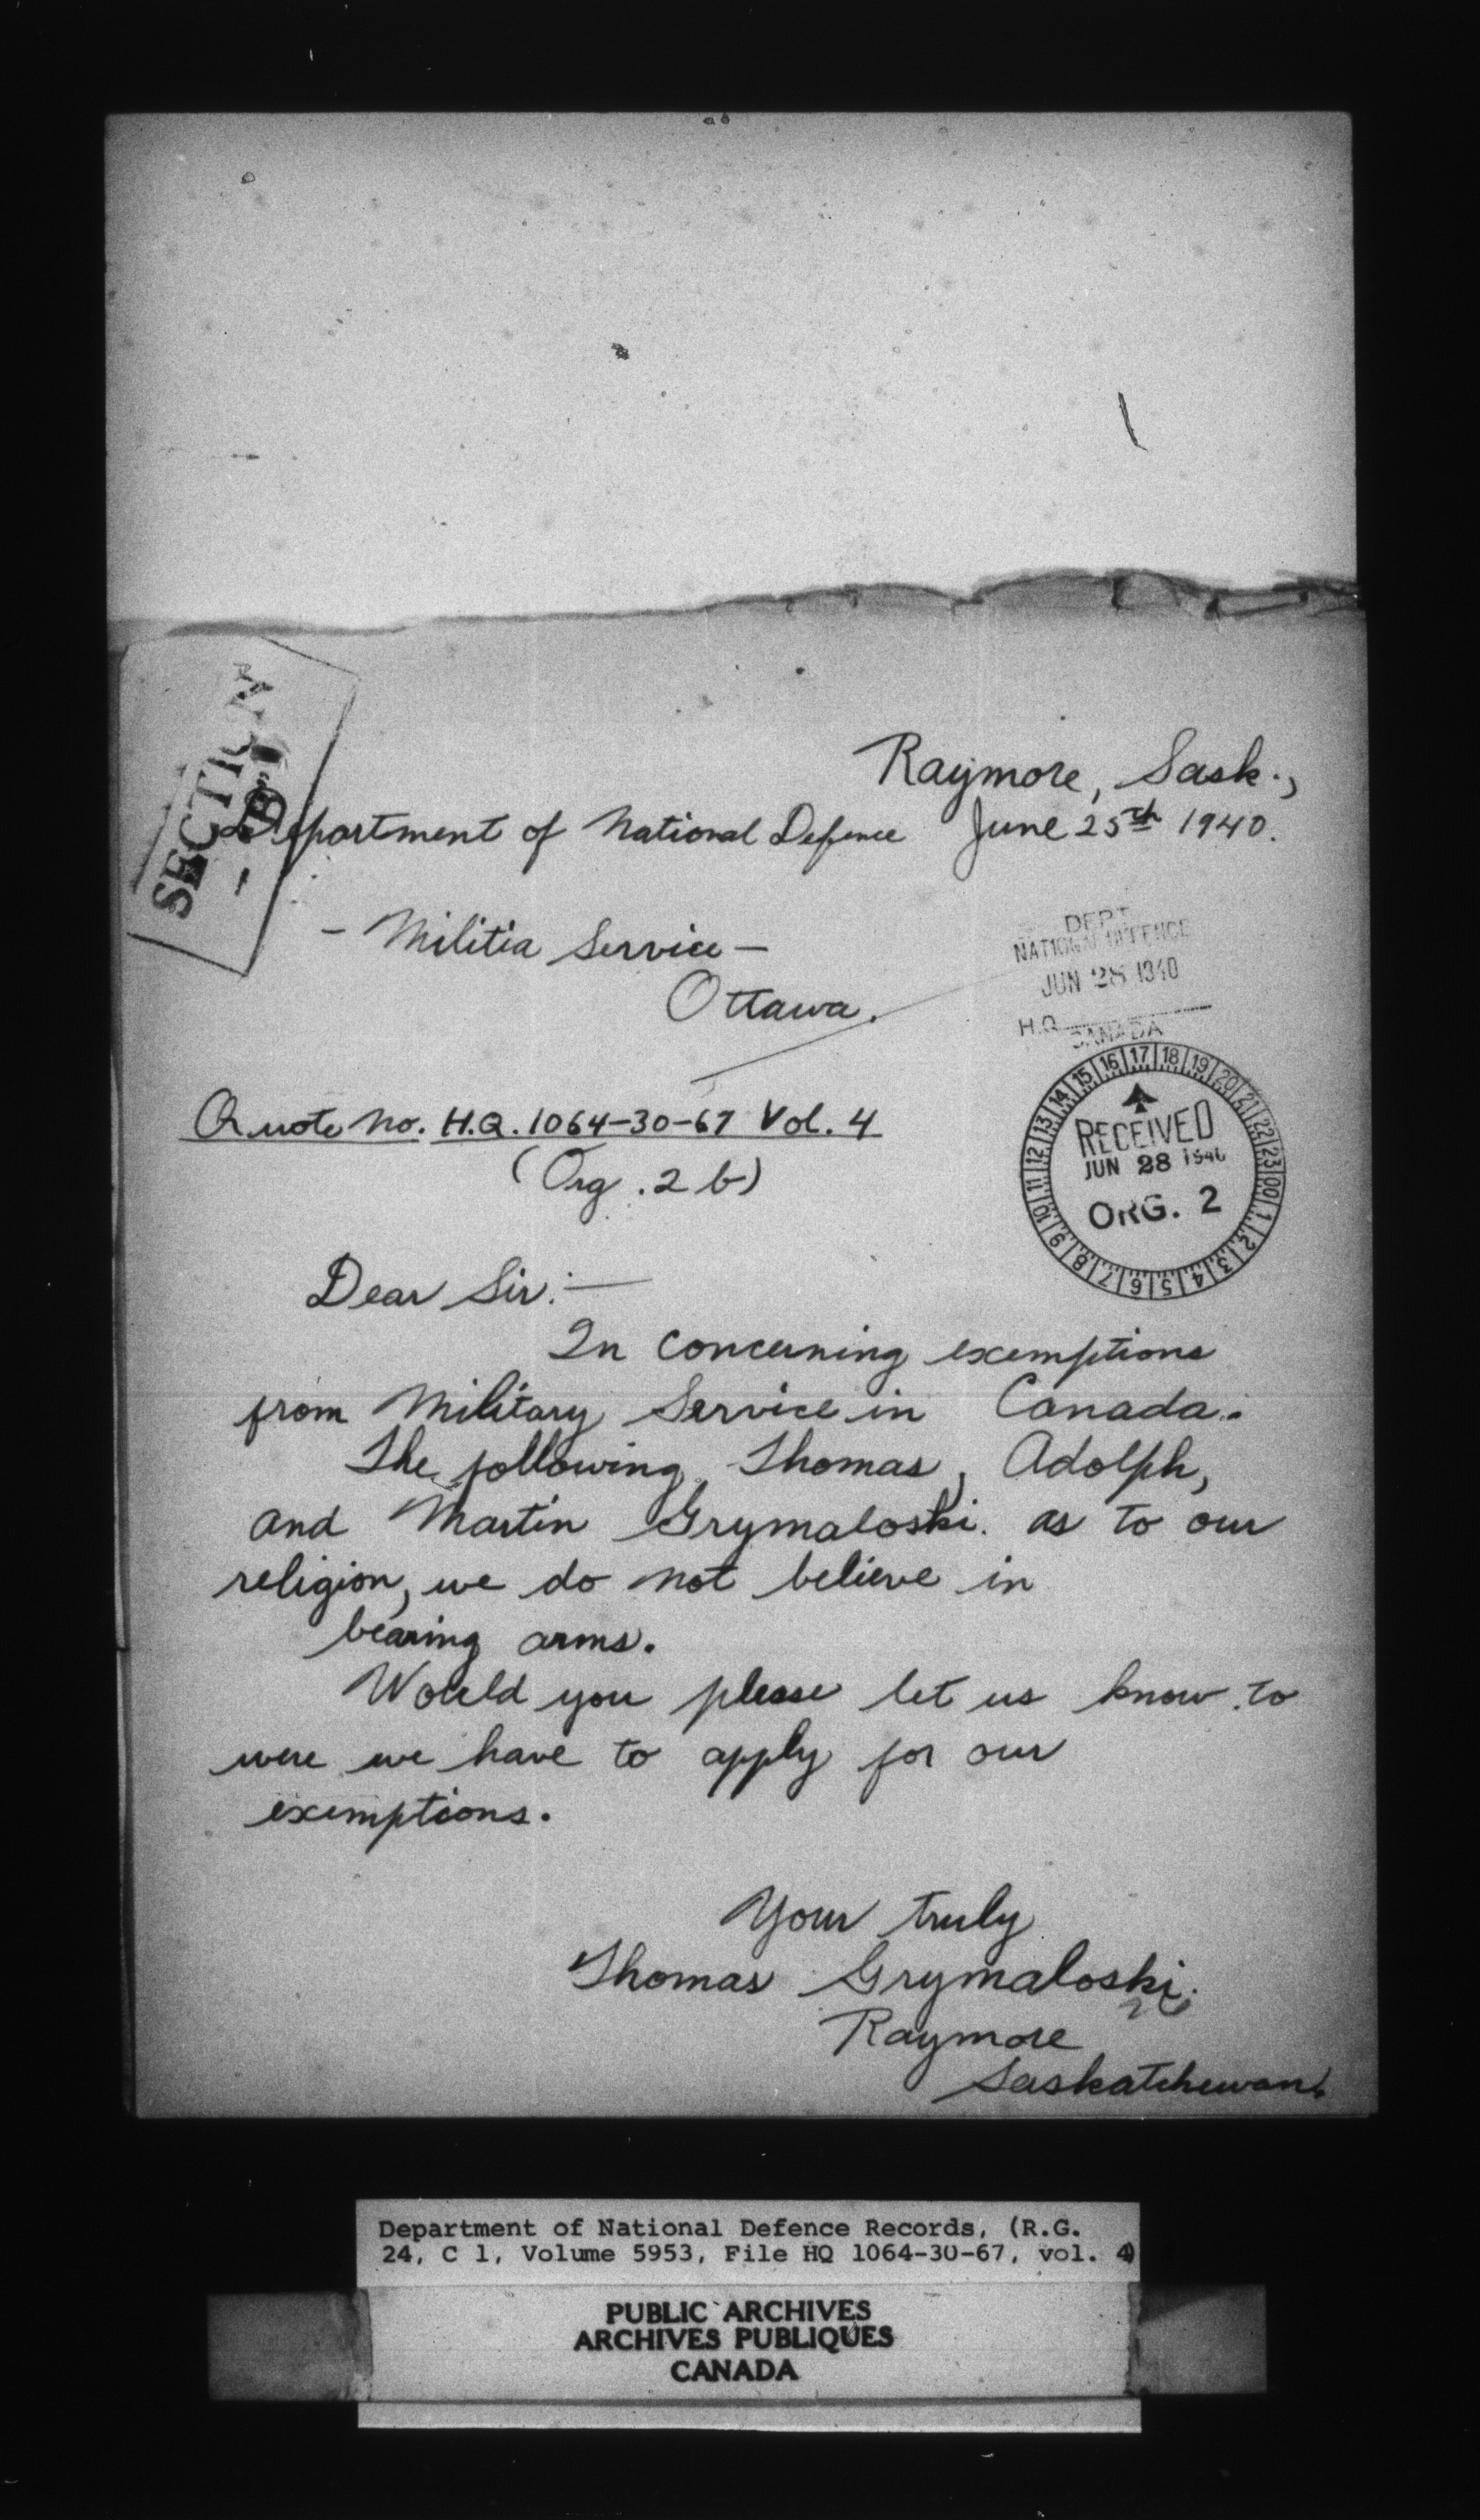 Raymore, Sask.,
Department of National Defence June 25th 1940.
SECTION
- B -
- Militia Service -
Ottawa.
DEPT.
NATIONAL DEFENCE
JUN 28 1940
H.Q.
CANADA
Quote No. H.Q. 1064-30-67 Vol. 4
(Org. 2 b)
15 16 17 18 19 20 21 22 23 00 1 2 3 4 5 6 7 8 9 10 11 12 13 14
RECEIVED
JUN 28 1940
ORG. 2
Dear Sir:—
In concerning exemptions
from Military Service in Canada.
The following Thomas, Adolph,
and Martin Grymaloski. as to our
religion, we do not believe in
bearing arms.
Would you please let us know to
were we have to apply for our
exemptions.
Your truly
Thomas Grymaloski.
Raymore
Saskatchewan.
Department of National Defence Records, (R.G.
24, C 1, Volume 5953, File HQ 1064-30-67, vol. 4)
PUBLIC ARCHIVES
ARCHIVES PUBLIQUES
CANADA